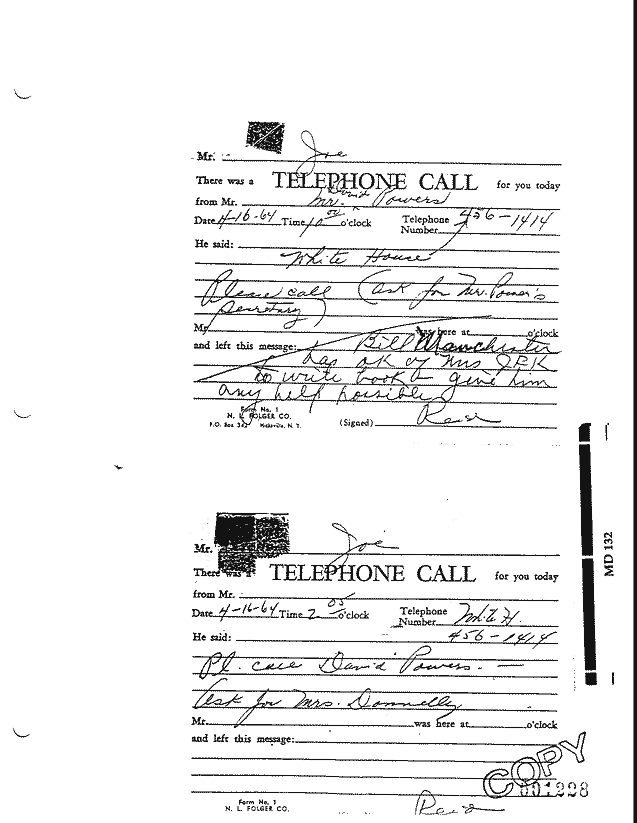 Joe
Mr.
There was a TELEPHONE CALL for you today
from Mr. Mr. David Powers
Date 4-16-64 Time 10 o'clock Telephone Number 456-1414
He said:
White House
Please call (ask for Mr. Power's
Secretary)
Mr. was here at o'clock
and left this message: Bill Manchester
has ok of Mrs JFK
to write book & give him
any help possible
Form No. 1
N. L. FOLGER CO.
P.O. Box Hicksville, N. Y. (Signed)
MD 132
Joe
Mr.
There was a TELEPHONE CALL for you today
from Mr.
Date 4-16-64 Time 2 05 o'clock Telephone Number
He said: 456-1414
Pl. call David Powers. —
Ask for Mrs. Donnelly
Mr. was here at o'clock
and left this message:
COPY
001228
Form No. 1
N. L. FOLGER CO.